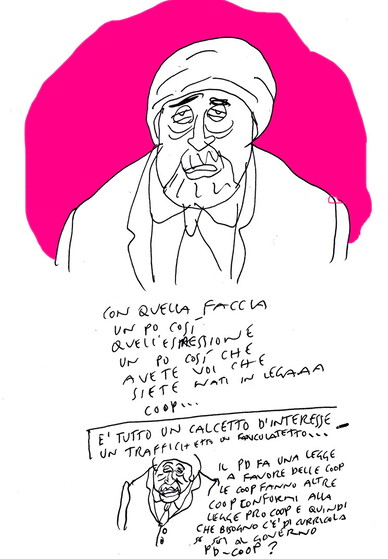 CON QUELLA FACCIA
UN PO COSÍ
QUELL'ESPRESSIONE
UN PO COSÍ CHE
AVETE VOI CHE
SIETE NATI IN LEGAAA
COOP...
E' TUTTO UN CALCETTO D'INTERESSE
UN
IL PD FA UNA LEGGE
A FAVORE DELLE COOP
LE COOP FANNO ALTRE
COOP CONFORMI ALLA
LEGGE PRO COOP E QUINDI
CHE BISOGNO C'È DI CURRICOLA
SE SEI AL GOVERNO
PD-COOP?